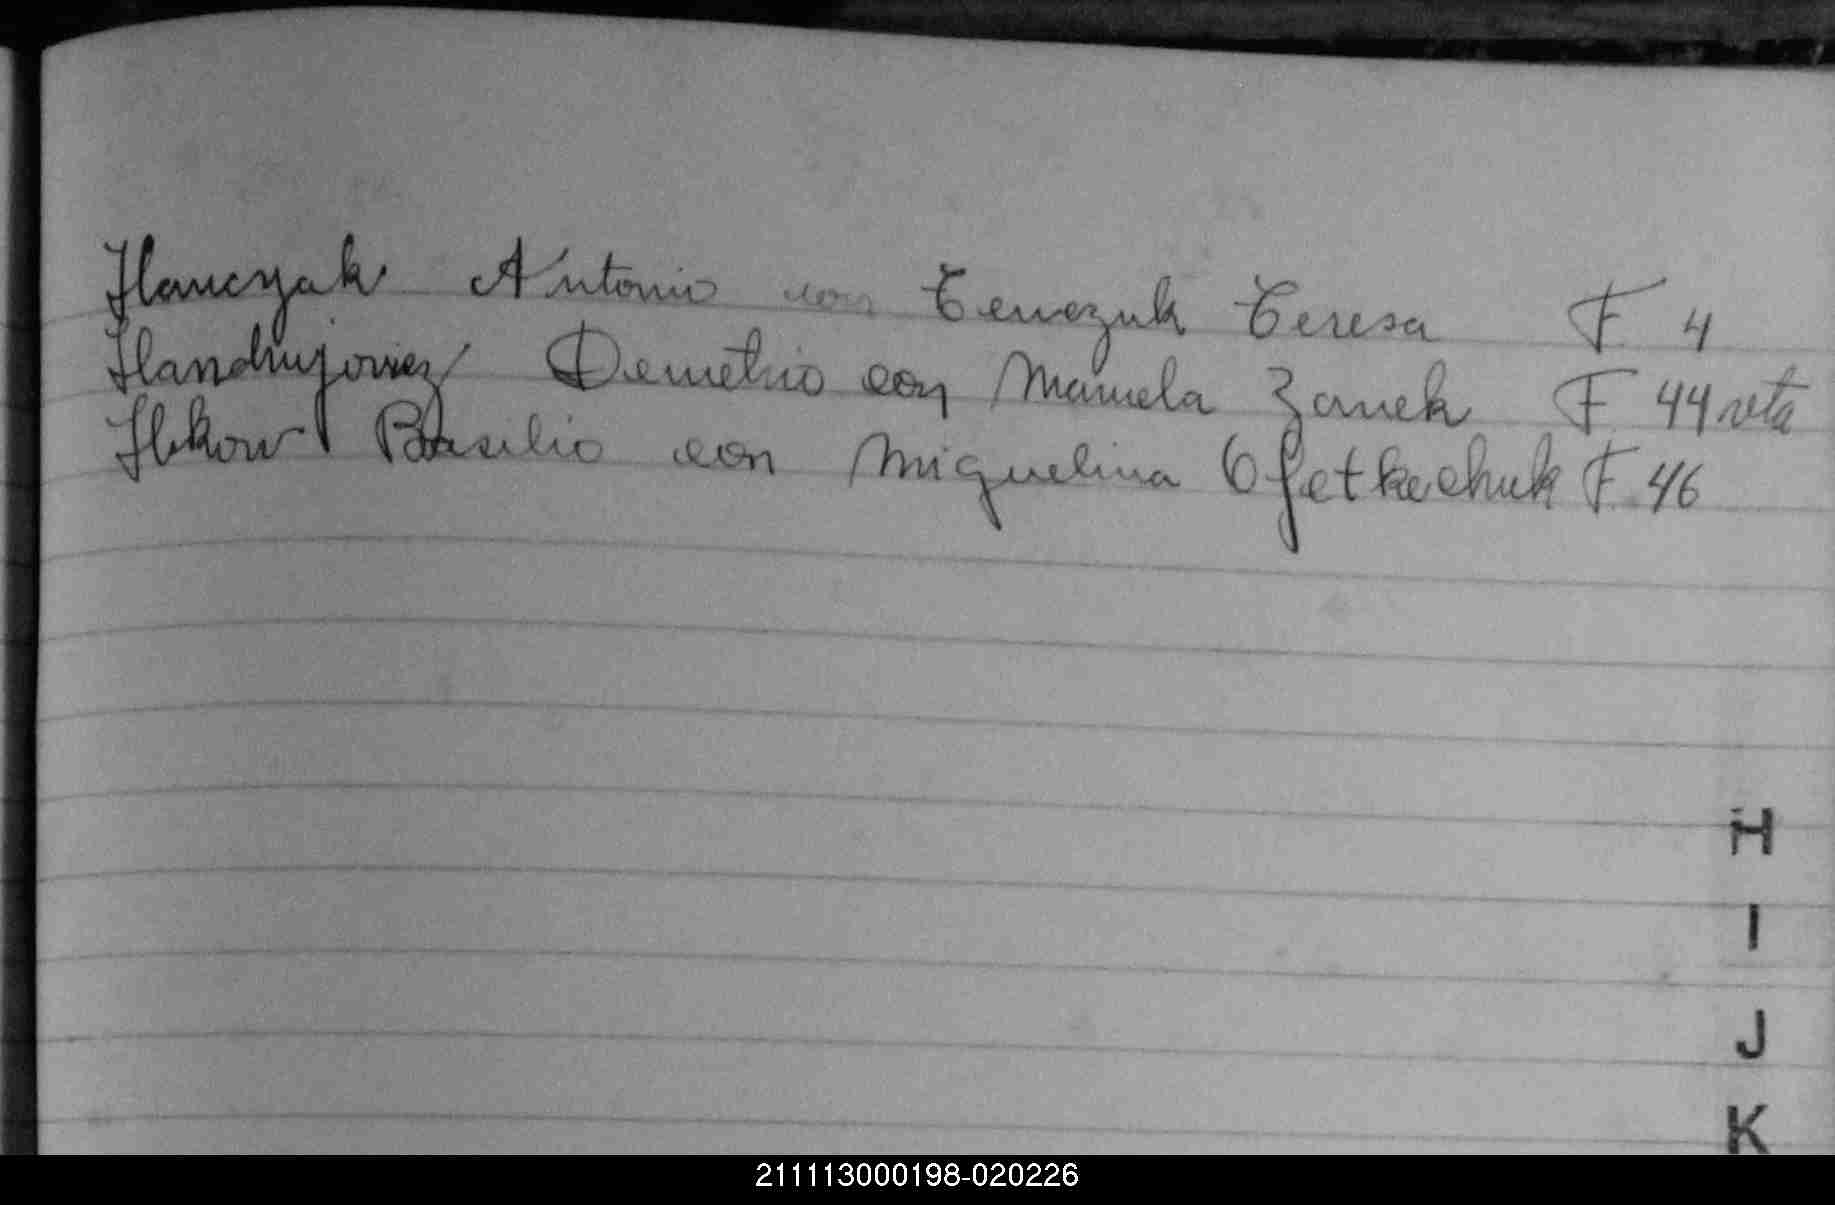 Hanczak Antonio con Tenczuk Teresa F 4
Handryjowicz Demetrio con Manuela Zanek F 44 vta
Ilkow Basilio con Miguelina Ofetkechuk F. 46
H
I
J
K
211113000198-020226